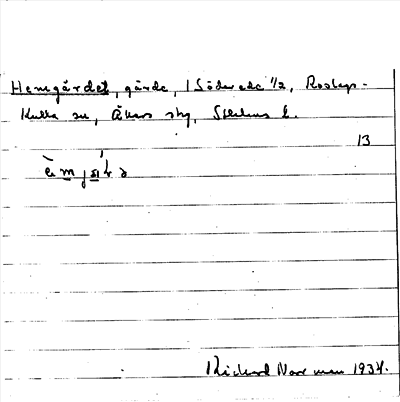 Hemgärdet, gärde, Söderede 1/2, Roslags-
Kulla sn, Åkers skg, Sthlms l.
13
Richard Norrman 1934.